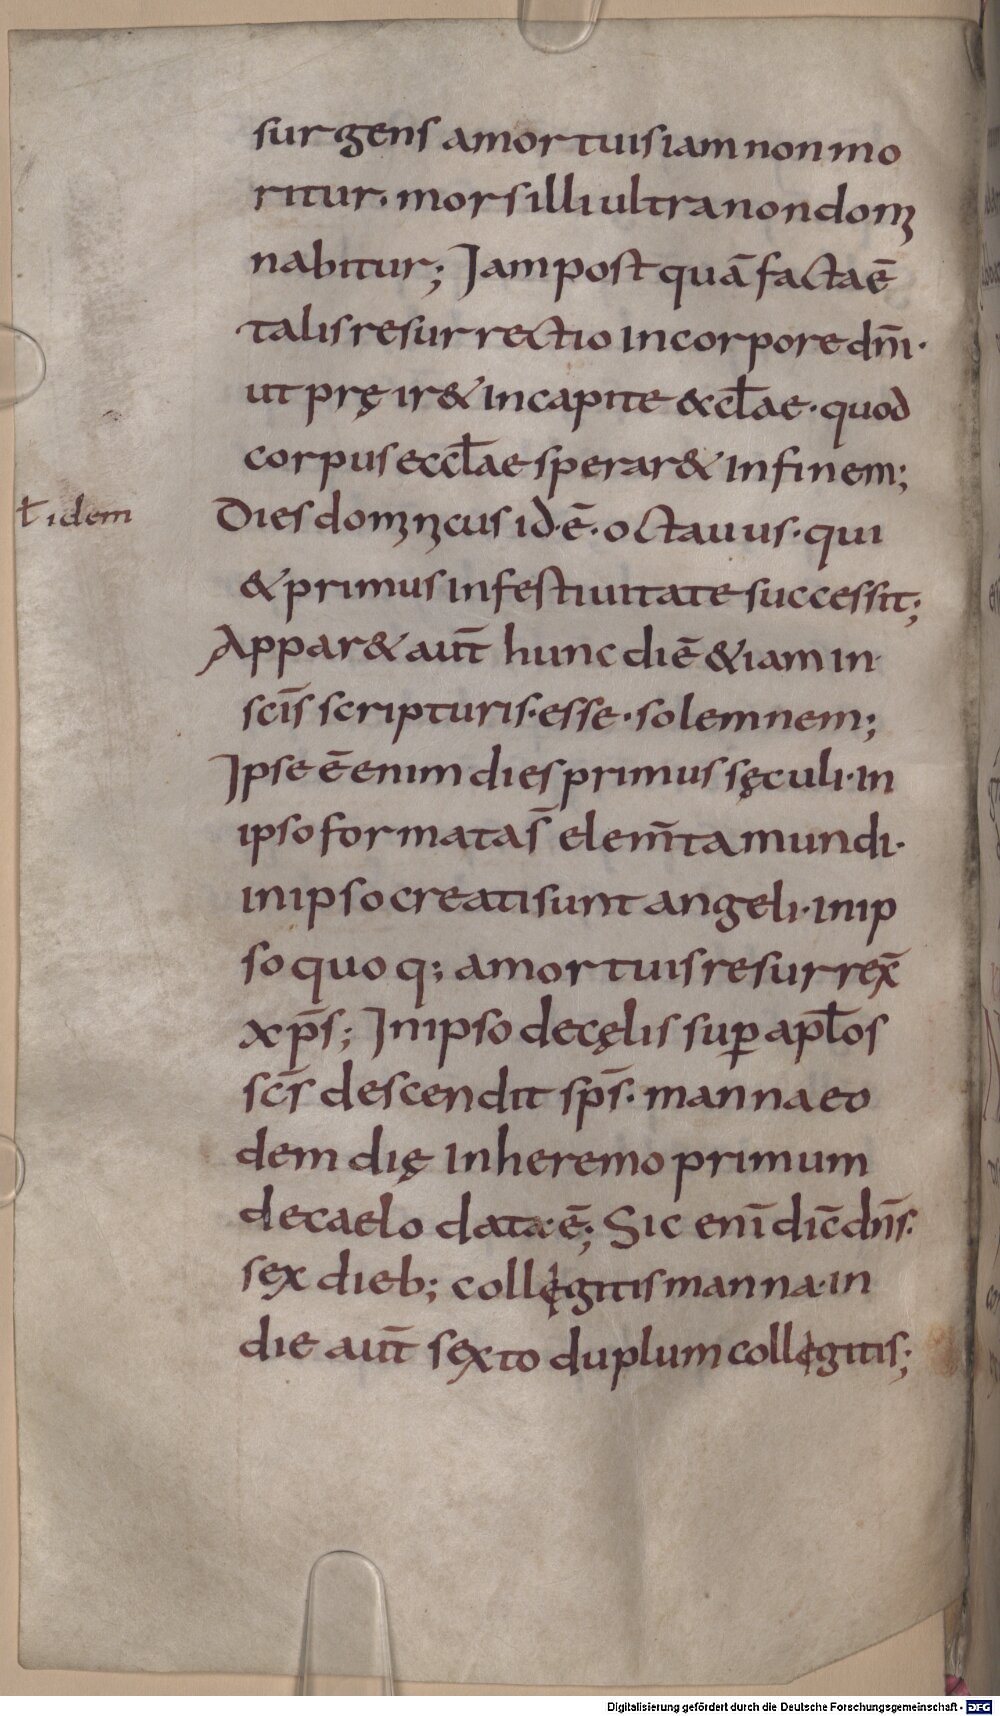 surgens amortuis iam non mo
ritur. mors illi ultra non domi
nabitur; Iam post quā facta ē
talis resurrectio in corpore dn̄i·
ut pręir& in capite &cl̄ae· quod
corpus eccl̄ae sperar& in finem;
ł idem
Dies dominicus id·ē· octauus· qui
& primus in festiuitate successit;
Appar& aut̄ hunc diē &iam in
sc̄is scripturis· esse· solemnem;
Ipse ē enim dies primus sęculi· in
ipso formata s̄ elem̄ta mundi·
in ipso creati sunt angeli· in ip
so quoq; amortuis resurrex̄
xp̄s; In ipso de cęlis sup̲ apl̄os
sc̄s descendit sp̄s· manna eo
dem dię in heremo primum
de caelo data· ē; Sic eni̅ dic̄ dn̄s·
sex dieb; collęgitis manna· in
die aut̄ sexto duplum collegitis;
Digitalisierung gefördert durch die Deutsche Forschungsgemeinschaft - DFG